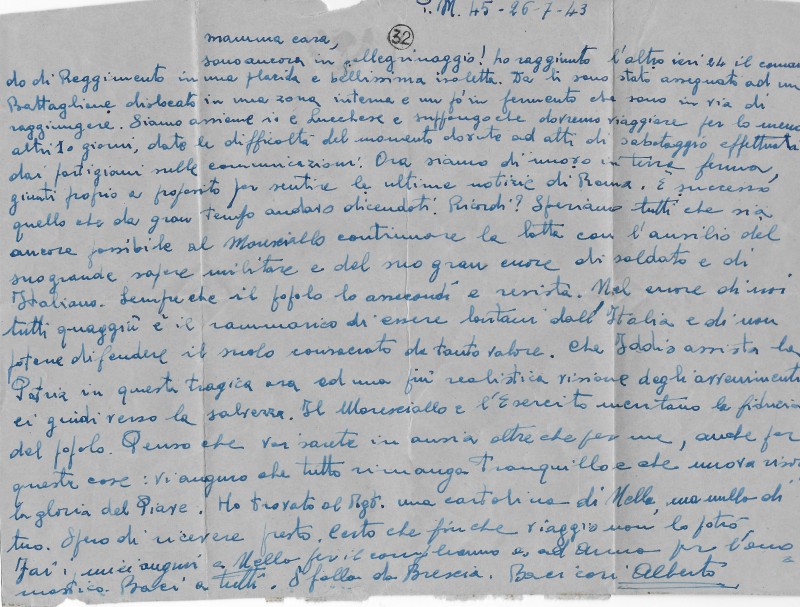 P.M. 45 - 26-7-43
32
mamma cara,
sono ancora in pellegrinaggio! ho raggiunto l'altro ieri 24 il coman
do di Reggimento in una placida e bellissima isoletta. Da lì sono stato assegnato ad un
Battaglione dislocato in una zona interna e un po' in fermento che sono in via di
raggiungere. Siamo assieme io e Lucchese e suppongo che dovremo viaggiare per lo meno
altri 10 giorni, date le difficoltà del momento dovute ad atti di sabotaggio effettuati
dai partigiani sulle comunicazioni. Ora siamo di nuovo in terra ferma,
giunti proprio a proposito per sentire le ultime notizie di Roma. È successo
quello che da gran tempo andavo dicendoti! Ricordi? Speriamo tutti che sia
ancora possibile al Maresciallo continuare la lotta con l'ausilio del
suo grande sapere militare e del suo gran cuore di soldato e di
Italiano. Sempre che il popolo lo assecondi e resista. Nel cuore di noi
tutti quaggiù è il rammarico di essere lontani dall'Italia e di non
poterne difendere il suolo consacrato da tanto valore. Che Iddio assista la
Patria in questa tragica ora ed una più realistica visione degli avvenimenti
ci guidi verso la salvezza. Il Maresciallo e l'Esercito meritano la fiducia
del popolo. Penso che voi sarete in ansia oltre che per me, anche per
queste cose: vi auguro che tutto rimanga tranquillo e che nuova risorga
la gloria del Piave. Ho trovato al Rgt. una cartolina di Mella, ma nulla di
tuo. Spero di ricevere presto. Certo che finche viaggio non lo potrò
Fai i miei auguri a Mella per il compleanno e ad Anna per l'ono
mastico. Baci a tutti. da Brescia. Baci cari Alberto